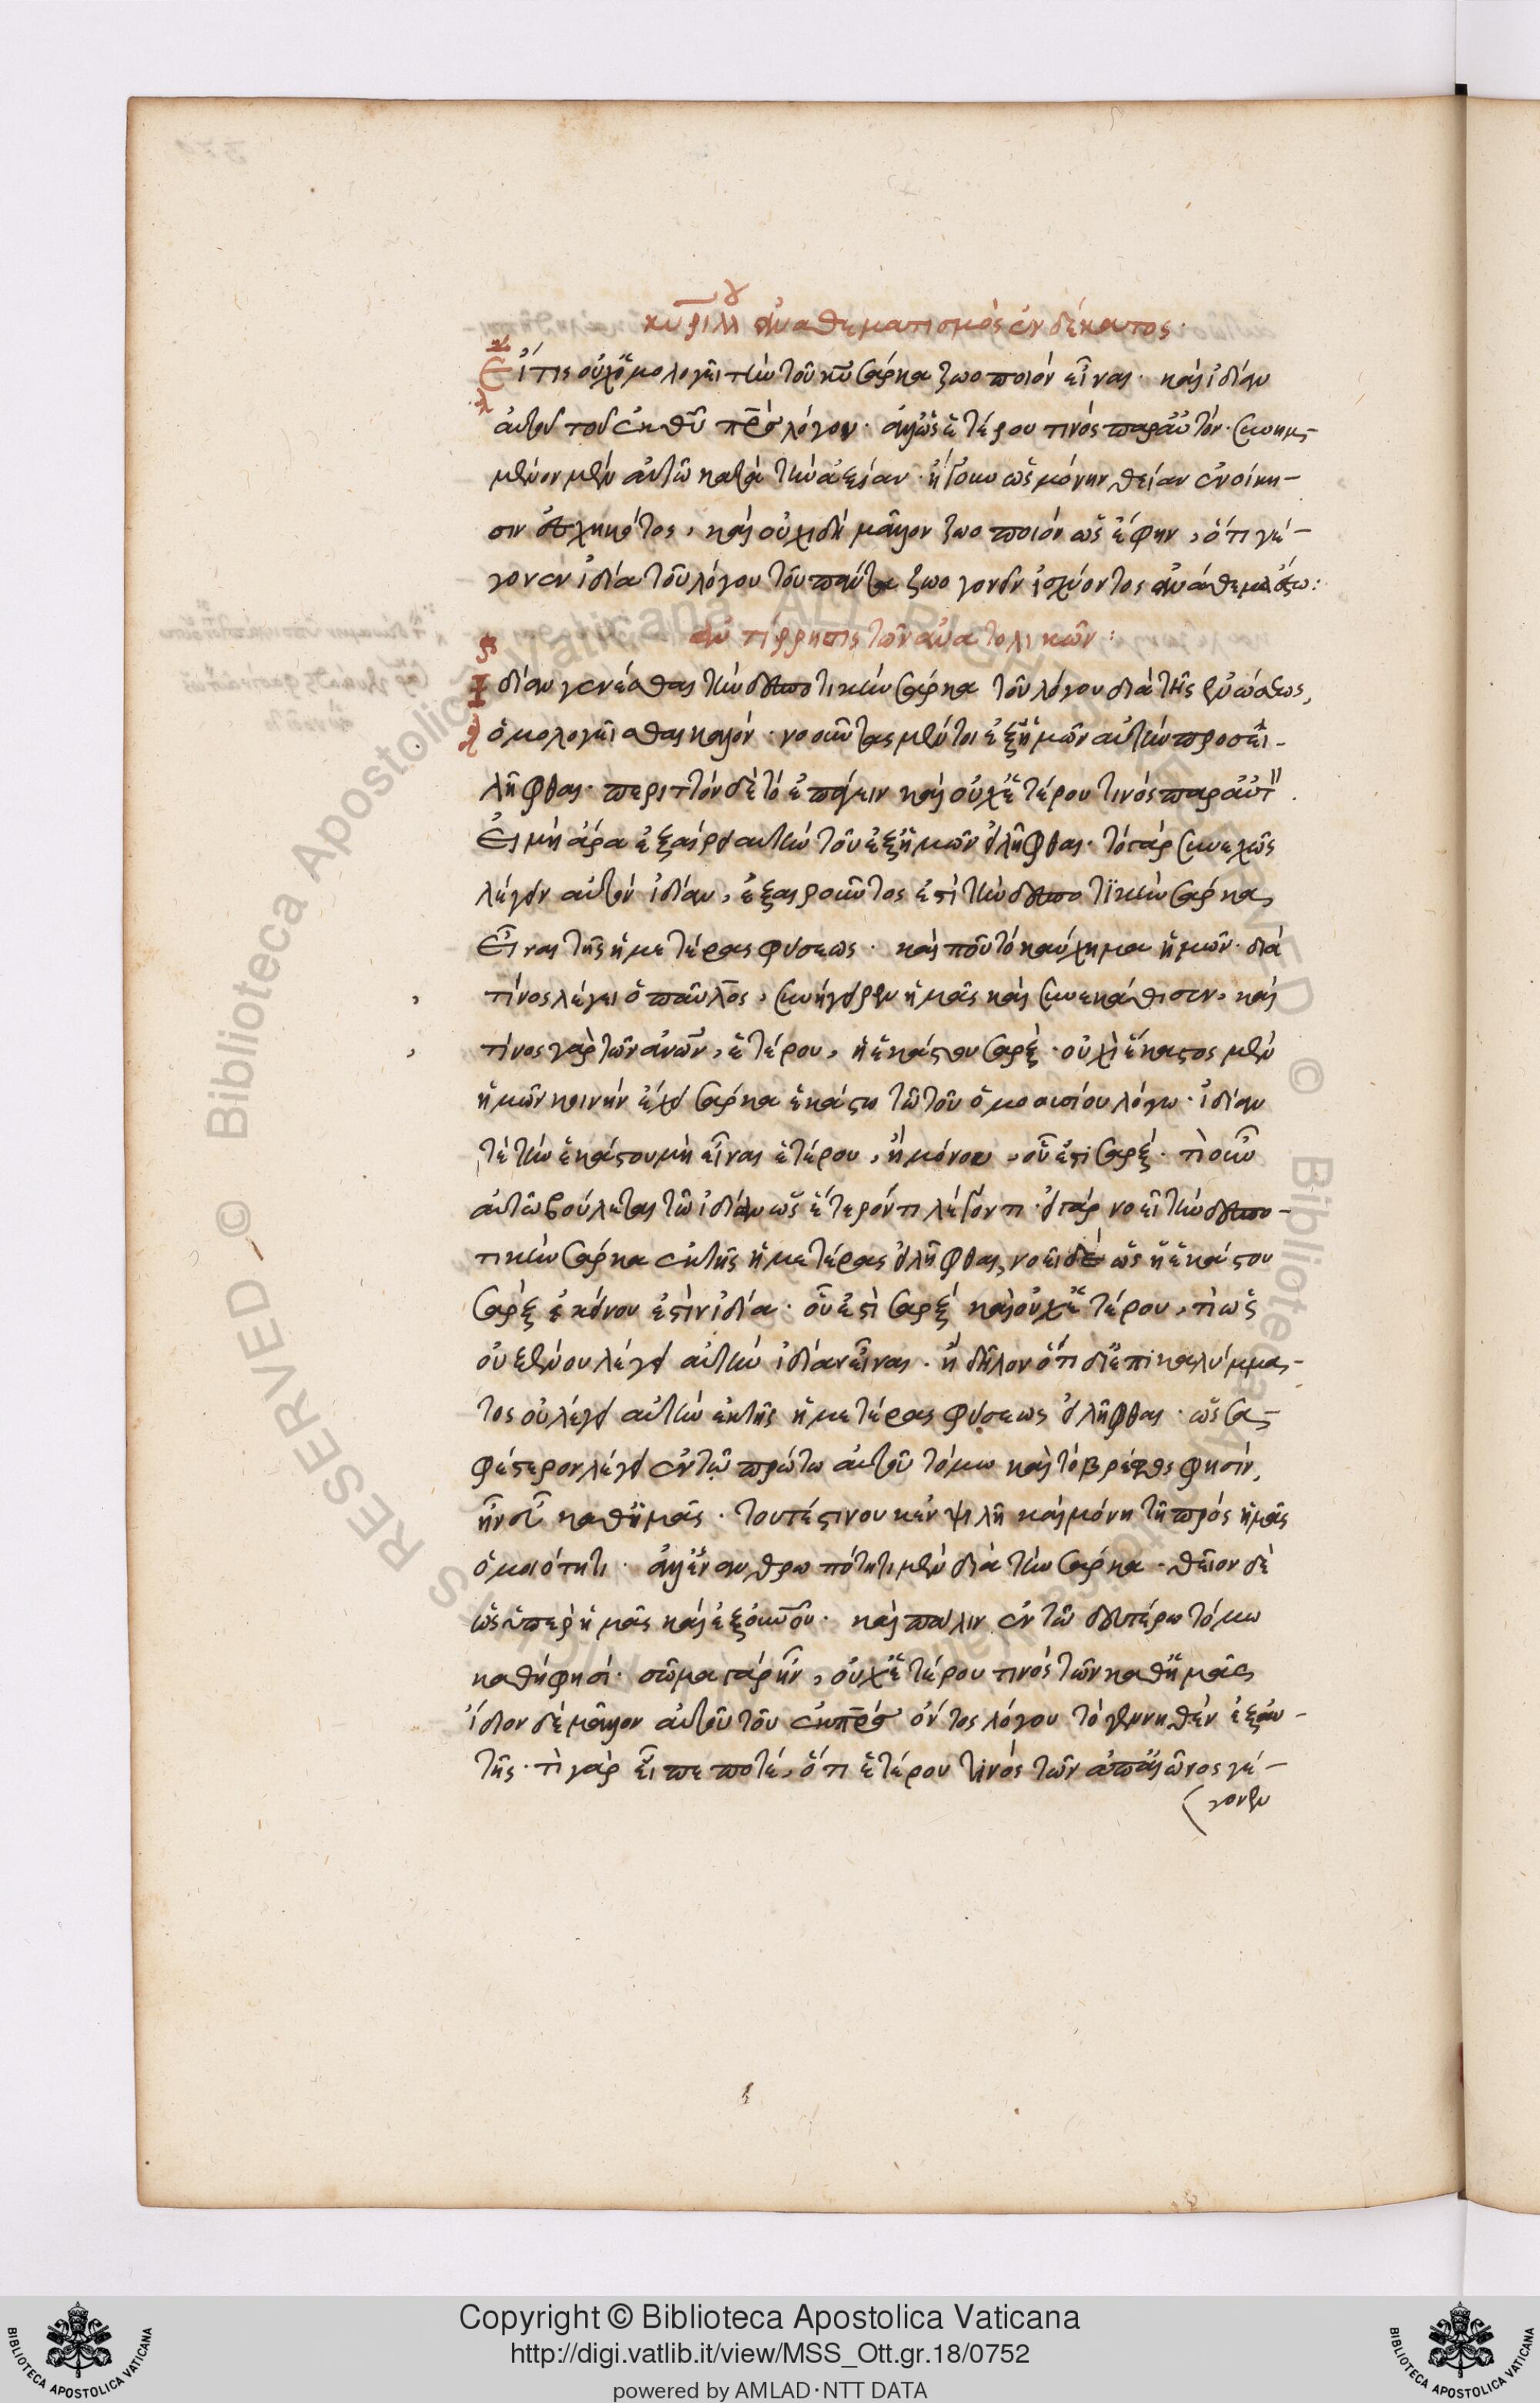 κυρίλλου ἀναθεματισμὸς ἐνδέκατος·
Εἴ τις οὐχ ὁμολογεῖ τὴν τοῦ κυ σάρκα ζωοποιόν εἶναι· καὶ ἰδίαν
αὐτοῦ τοῦ ἐκ θυ πρσ λόγου· ἀλλ' ὡς ἑτέρου τινός παρ' αὐτόν· συνημ-
μένον μὲν αὐτῶ κατὰ τὴν ἀξίαν· ἤγουν ὡς μόνην θείαν ἐνοίκη-
σιν ἐσχηκότος, καὶ οὐχὶ δὴ μᾶλλον ζωοποιόν ὡς ἔφην, ὅτι γέ-
γονεν ἰδία τοῦ λόγου τοῦ πάντα ζωογονεῖν ἰσχύοντος ἀνάθεμα ἔστω:
ἀντίρρησις τῶν ἀνατολικῶν:
Ἰδίαν γενέσθαι τὴν δεσποτικὴν σάρκα τοῦ λόγου διὰ τῆς ἑνώσεως,
ὁμολογεῖσθαι καλόν· νοοῦντας μέντοι ἐξ ἡμῶν αὐτὴν προσει-
λῆφθαι· περιττόν δὲ τὸ ἐπάγειν καὶ οὐχ ἑτέρου τινός παρ' αὐτ
Εἰ μὴ ἄρα ἐξαίρει αὐτὴν τοῦ ἐξ ἡμῶν εἰλῆφθαι· τὸ γάρ συνεχῶς
λέγειν αὐτὴν ἰδίαν, ἐξαιροῦντος ἐστὶ τὴν δεσποτικὴν σάρκα,
Εἶναι τῆς ἡμετέρας φύσεως· καὶ ποῦ τὸ καύχημα ἡμῶν· διὰ
τίνος λέγει ὁ παῦλος, συνήγειρεν ἡμᾶς καὶ συνεκάθισεν, καὶ
τίνος γὰρ τῶν ανων, ἑτέρου, ἡ ἑκάστου σάρξ· οὐχὶ ἕκαστος μὲν
ἡμῶν κοινὴν ἔχει σάρκα ἑκάστω τῶ τοῦ ὁμοουσίου λόγω· ἰδίαν
τὲ τὴν ἑκάστου μὴ εἶναι ἑτέρου, ἢ μόνου, οὗ ἐστι σάρξ· τὶ οὖν
αὐτῶ βούλεται τῶ ἰδίαν ὡς ἕτερόν τι λέγοντι· εἰ γάρ νοεῖ τὴν δεσπο-
τικὴν σάρκα ἐκ τῆς ἡμετέρας εἰλῆφθαι, νοεῖ δὲ ὡς ἡ ἑκάστου
σάρξ ἐκείνου ἐστὶν ἰδία· οὗ ἐστὶ σάρξ καὶ οὐχ ἑτέρου, τὶ ὡς
οὐ ξένου λέγει αὐτὴν ἰδίαν εἶναι· ἢ δῆλον ὅτι δι' ἐπικαλύμμα-
τος οὐ λέγει αὐτὴν ἐκ τῆς ἡμετέρας φύσεως εἰλῆφθαι· ὡς σα-
φέστερον λέγει ἐν τῶ πρώτω αὐτοῦ τόμω καὶ τὸ βρέφος φησίν,
ἦν οὐ καθ' ἡμᾶς· τουτέστιν οὐκ ἐν ψιλῆ καὶ μόνη τῆ πρὸς ἡμᾶς
ὁμοιότητι· ἀλλ' ἐν ανθρωπότητι μὲν διὰ τὴν σάρκα· θεῖον δὲ
ὡς ὑπὲρ ἡμᾶς καὶ ἐξ ουνου· καὶ πάλιν ἐν τῶ δευτέρω τόμω
καθή φησί· σῶμα γάρ ἦν, οὐχ ἑτέρου τινός τῶν καθ' ἡμᾶς
ἴδιον δὲ μᾶλλον αὐτοῦ τοῦ ἐκ πρσ ὄντος λόγου τὸ γεννηθὲν ἐξ αυ-
τῆς· τὶ γὰρ εἶπε ποτέ, ὅτι ἑτέρου τινός τῶν ἀπ' αἰῶνος γέ-
γονεν
Copyright © Biblioteca Apostolica Vaticana
http://digi.vatlib.it/view/MSS_Ott.gr.18/0752
powered by AMLAD·NTT DATA